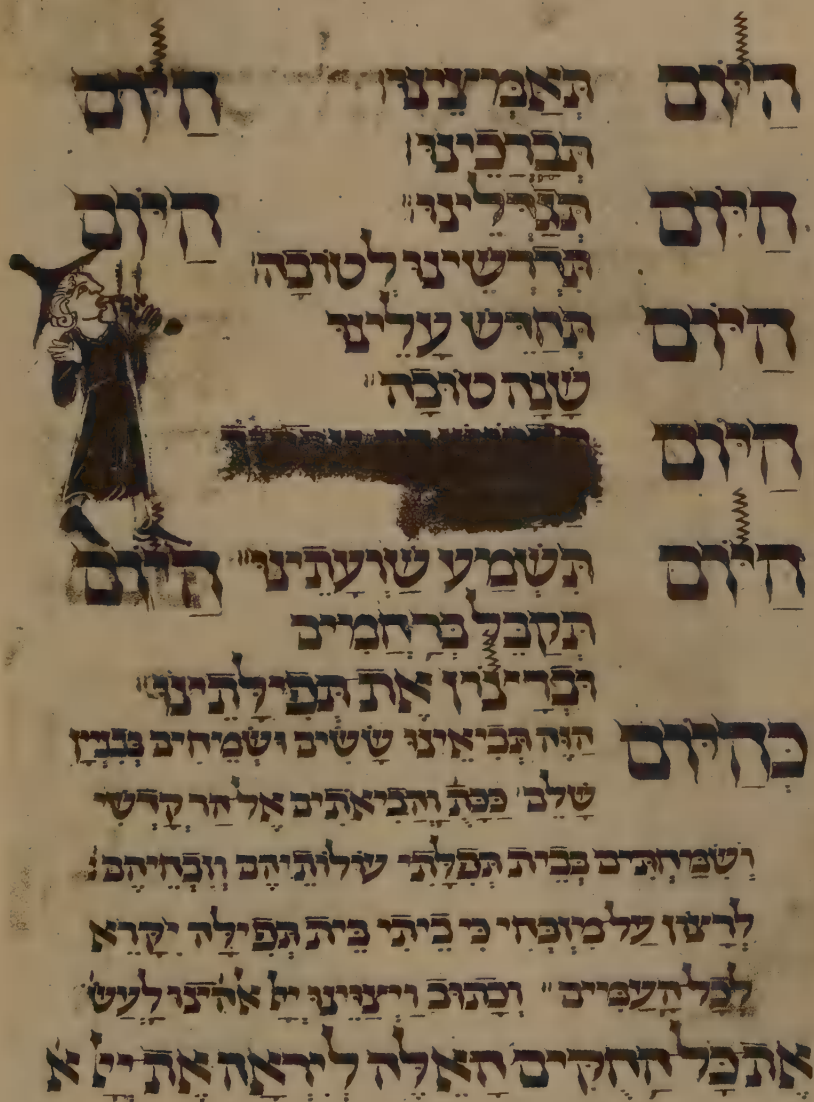 הַיּוֹם תְּאַמְּצֵינוּ הַיּוֹם
תְּבָרְכֵינוּ
הַיּוֹם תְּגַדְּלֵינוּ הַיּוֹם
תִּדְרְשֵׁינוּ לְטוֹבָה
הַיּוֹם תְּחַדֵּשׁ עָלֵינוּ
שָׁנָה טוֹבָה
הַיּוֹם
הַיּוֹם תִּשְׁמַע שַׁוְעָתֵינוּ הַיּוֹם
תְּקַבֵּל בְּרַחֲמִים
וּבְרָיצוֹן אֶת תְּפִילָּתֵינוּ
כְּהַיּוֹם הַזֶּה תְּבִיאֵינוּ שָׂשִׂים וּשְׂמֵיחִים בְּבִנְיָן
שָׁלֵם כַּכָּתׄ וַהֲבִיאֹתִים אֶל הַר קָדְשִׁי
וְשִׂמַּחְתִּים בְּבֵית תְּפִלָּתִי עוֹלוֹתֵיהֶם וְזִבְחֵיהֶם
לְרָצוֹן עַל מִזְבְּחִי כִּי בֵיתִי בֵּית תְּפִילָּה יִקָּרֵא
לְכָל הָעַמִּים וְכָתוּב וַיְצַוֵּינוּ יְיָ אֹלהֵינוּ לַעֲשׂ
אֶת כָּל הַחֻקִּים הָאֵלֶּה לְיִרְאָה אֶת יְיָ א